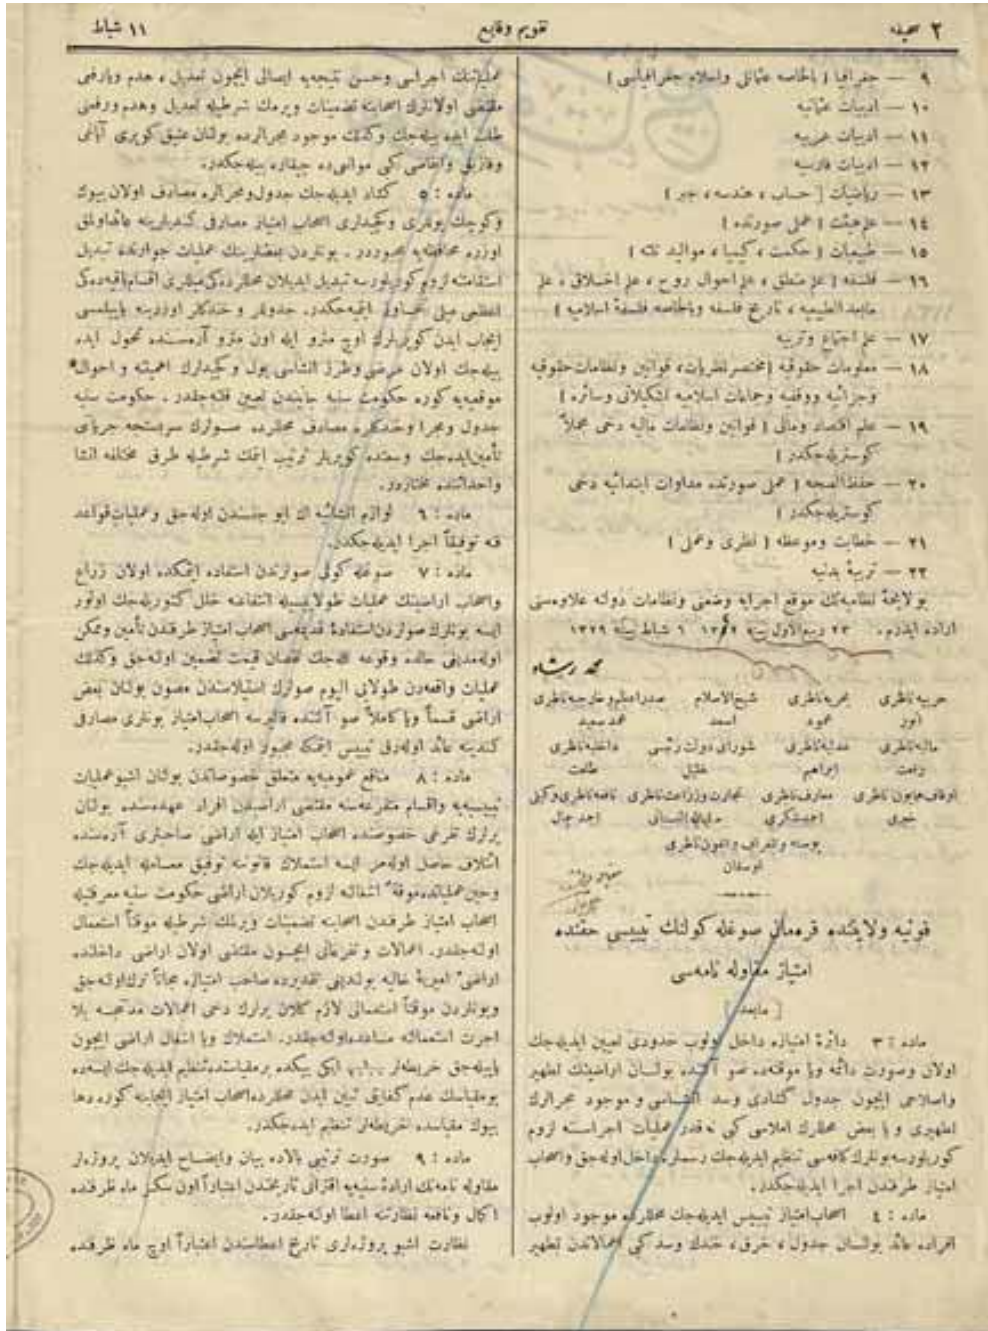 ٢ صحیفه
تقویم وقایع
١١ شباط
٩ — جغرافیا [ بالخاصه عثمانلی واسلام جغرافیاسی ]
١٠ — ادبیات عثمانیه
١١ — ادبیات عربیه
١٢ — ادبیات فارسیه
١٣ — ریاضیات [ حساب ، هندسه ، جبر ]
١٤ — علم هیئت [ عملی صورتده ]
١٥ — طبیعیات [ حکمت ، کیمیا ، موالید ثلثه ]
١٦ — فلسفه [ علم منطق ، علم احوال روح ، علم اخلاق ، علم
مابعد الطبیعیه ، تاریخ فلسفه وبالخاصه فلسفۀ اسلامیه ]
١٧ — علم اجتماع وتربیه
١٨ — معلومات حقوقیه [ مختصر نظریات ، قوانین ونظامات حقوقیه
وجزائیه ووقفیه وجماعات اسلامیه تشکیلاتی وسائره ]
١٩ — علم اقتصاد ومالی [ قوانین ونظامات مالیه دخی مجملاً
کوستریله‌جکدر ]
٢٠ — حفظ الصحه [ عملی صورتده مداوات ابتدائیه دخی
کوستریله‌جکدر ]
٢١ — خطابت وموعظه [ نظری وعملی ]
٢٢ — تربیۀ بدنیه
بو لایحۀ نظامیه‌نك موقع اجرایه وضعنی ونظامات دولته علاوه‌سنی
اراده ایلدم . ٢٣ ربیع الاول سنه ١٣٣٢ ٦ شباط سنه ١٣٢٩
محمد رشاد
حربیه ناظری بحریه ناظری شیخ الاسلام صدر اعظم وخارجیه ناظری
انور جمود اسعد محمد سعید
مالیه ناظری عدلیه ناظری شورای دولت رئیسی داخلیه ناظری
رفعت ابراهیم خلیل طلعت
اوقاف همایون ناظری معارف ناظری تجارت وزراعت ناظری نافعه ناظری وکیلی
خیری احمد شکری سلیمان البستانی احمد جمال
پوسته وتلغراف وتلفون ناظری
اوسقان
قونیه ولایتنده قره‌مان صوغله کولنك تیبیسی حقنده
امتیاز مقاوله نامه‌سی
[ مابعد ]
ماده : ٣ دائرۀ امتیازه داخل اولوب حدودی تعیین ایدیله‌جك
اولان وصورت دائمه ویا موقته‌ده صو آلتنده بولنان اراضینك تطهیر
واصلاحی ایچون جدول کشادی وسد انشاسی وموجود مجرالرك
تطهیری ویا بعض محللرك املاسی کبی نه قدر عملیات اجراسنه لزوم
کوریلورسه بونلرك کافه‌سی تنظیم ایدیله‌جك رسملره داخل اوله‌جق واصحاب
امتیاز طرفندن اجرا ایدیله‌جکدر .
ماده : ٤ اصحاب امتیاز تیبیس ایدیله‌جك محللرده موجود اولوب
افراده عائد بولنان جدول ، خرق ، خندك وسد کبی اعمالاتدن تطهیر
عملیاتنك اجراسی وحسن نتیجه‌یه ایصالی ایچون تعدیل ، هدم ویارفعی
مقتضی اولانلرك اصحابنه تضمینات ویرمك شرطیله تعدیل وهدم ورفعنی
طلب ایده بیله‌جك وکذلك موجود مجرالرده بولنان عتیق کوپری آیاغی
وقازیق وانقاضی کبی موانعی‌ده چیقاره بیله‌جکدر .
ماده : ٥ کشاد ایدیله‌جك جدول ومجرالره مصادف اولان بیوك
وکوچك یوللری وکچیدلری اصحاب امتیاز مصارفی کندیلرینه عائد اولمق
اوزره محافظه‌یه مجبوردر . یوللردن بعضلرینك عملیات جوارنده تبدیل
استقامتنه لزوم کوریلورسه تبدیل ایدیلان محللرده‌کی میللری اقسام باقیه‌ده‌کی
اعظمی میلی تجاوز ایتمیه‌جکدر . جدوللر و خندکلر اوزرینه یاپیلمسی
ایجاب ایدن کوپریلرك اوچ مترو ایله اون مترو آره‌سنده تحول ایده
بیله‌جك اولان عرضی وطرز انشاسی یول وکچیدلرك اهمیتنه واحوال
موقعیه‌یه کوره حکومت سنیه جانبندن تعیین قلنه‌جقدر . حکومت سنیه
جدول ومجرا وخندکلره مصادف محللرده صولرك سربستجه جریانی
تأمین ایده‌جك وسعتده کوپریلر ترتیب ایتمك شرطیله طرق مختلفه انشا
واحداثنده مختاردر .
ماده : ٦ لوازم انشائیه اك ایو جنسندن اوله‌جق وعملیات قواعد
فنه توفیقاً اجرا ایدیله‌جکدر .
ماده : ٧ صوغله کولی صولرندن استفاده ایتمکده اولان زراع
واصحاب اراضینك عملیات طولاییسیله انتفاعنه خلل کتوریله‌جك اولور
ایسه بونلرك صولردن استفادۀ قدیمه‌سی اصحاب امتیاز طرفندن تأمین وممکن
اوله‌مدیغی حالده وقوعه کله‌جك نقصان قیمت تضمین اوله‌جق وکذلك
عملیات واقعه‌دن طولایی الیوم صولرك استیلاسندن مصون بولنان بعض
اراضی قسماً ویا کاملاً صو آلتنده قالیرسه اصحاب امتیاز بونلری مصارفی
کندینه عائد اوله‌رق تیبیس ایتمکه مجبور اوله‌جقدر .
ماده : ٨ منافع عمومیه‌یه متعلق خصوصاتدن بولنان اشبو عملیات
تیبیسیه واقسام متفرعه‌سنه مقتضی اراضیدن افراد عهده‌سنده بولنان
یرلرك تفرغی خصوصنده اصحاب امتیاز ایله اراضی صاحبلری آره‌سنده
ائتلاف حاصل اوله‌مز ایسه استملاك قانوننه توفیق معامله ایدیله‌جك
وحین عملیاتده موقة اشغالنه لزوم کوریلان اراضی حکومت سنیه معرفتیله
اصحاب امتیاز طرفندن اصحابنه تضمینات ویرلمك شرطیله موقتاً استعمال
اولنه‌جقدر . اعمالات وتفرعاتی ایچون مقتضی اولان اراضی داخلنده
اراضی امیریۀ خالیه بولندیغی تقدیرده صاحب امتیازه مجاناً ترك اولنه‌جق
وبونلردن موقتاً استعمالی لازم کلان یرلرك دخی اعمالات مدتنجه بلا
اجرت استعمالنه مساعده اولنه‌جقدر . استملاك ویا اشغال اراضی ایچون
یاپیله‌جق خریطه‌لر ایکی بیکده بر مقیاسنده تنظیم ایدیله‌جك ایسه‌ده
بو مقیاسك عدم کفایتی تبین ایدن محللرده اصحاب امتیاز ایجابنه کوره دها
بیوك مقیاسده خریطه‌لر تنظیم ایده‌جکدر .
ماده : ٩ صورت ترتیبی بالاده بیان وایضاح ایدیلان پروژه‌لر
مقاوله نامه‌نك ارادۀ سنیه‌یه اقترانی تاریخندن اعتباراً اون سکز ماه ظرفنده
اکمال ونافعه نظارتنه اعطا اولنه‌جقدر .
نظارت اشبو پروژه‌لری تاریخ اعطاسندن اعتباراً اوچ ماه ظرفنده